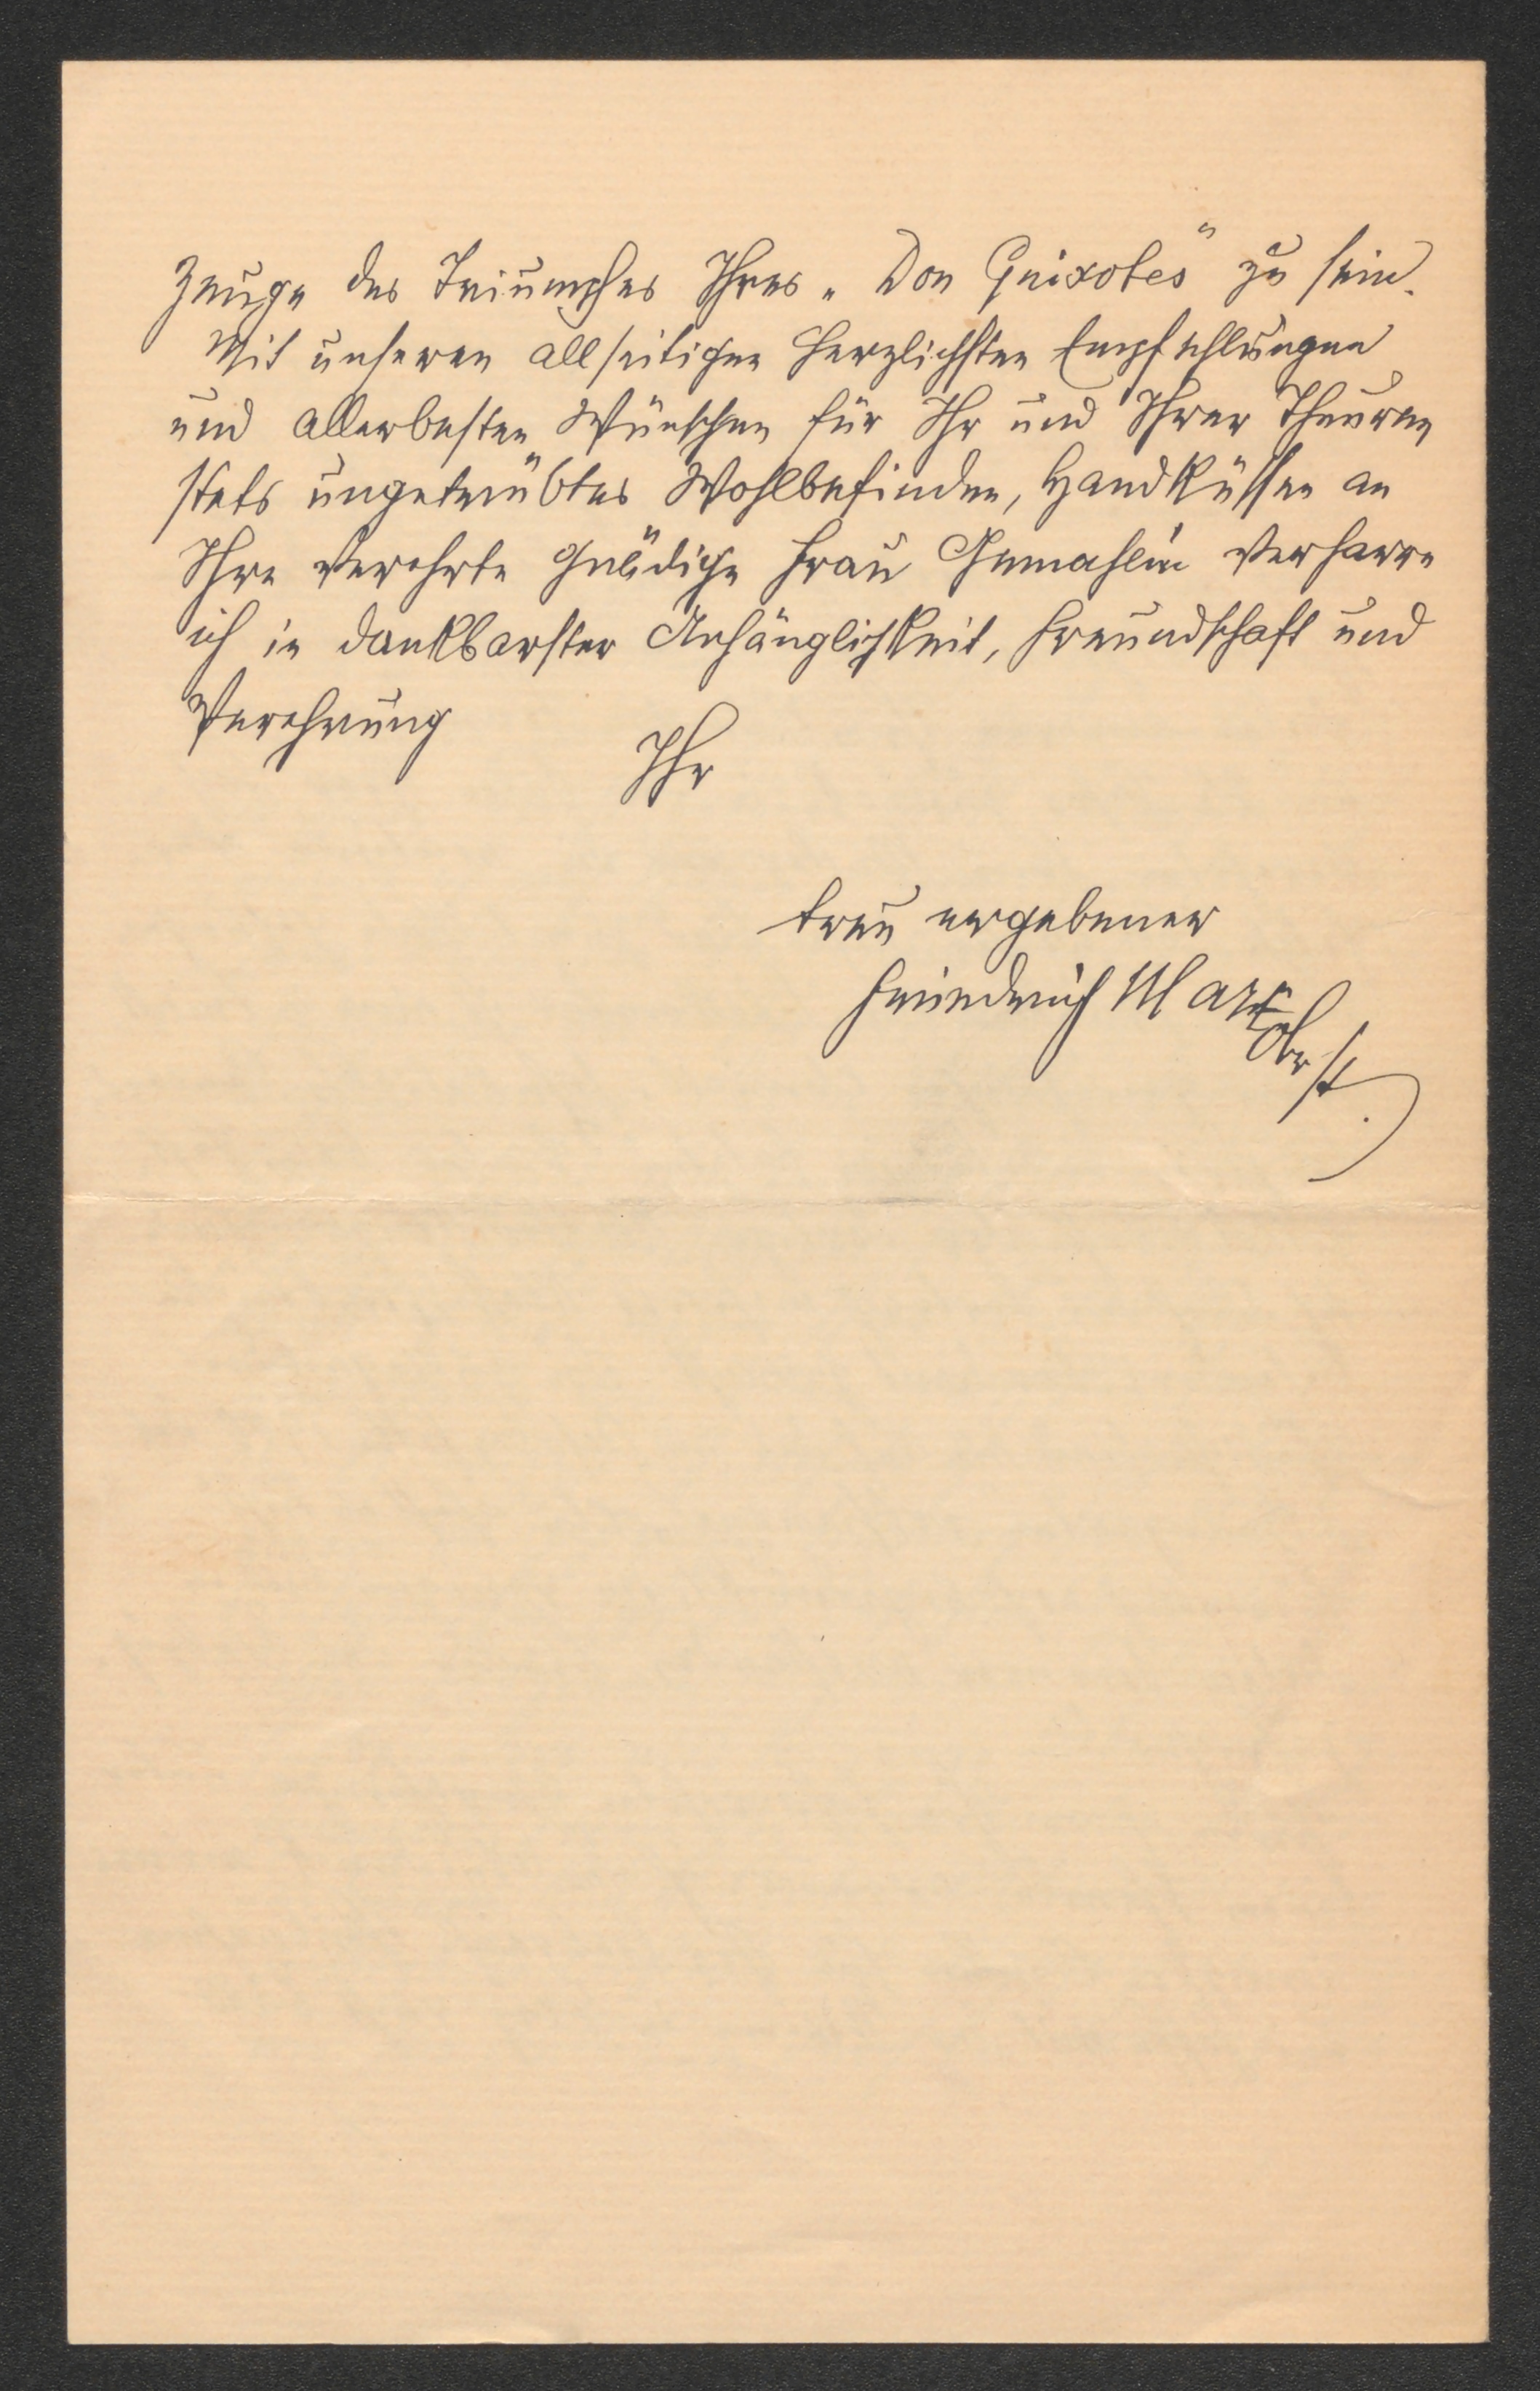 Zeuge des Triumphes Ihres „Don Quixotes" zu sein.
Mit unseren allseitigen herzlichsten Empfehlungen
und allerbesten Wünschen für Ihr und Ihrer Theuren
stets ungetrübtes Wohlbefinden, Handküssen an
Ihre verehrte gnädige Frau Gemahlin verharre
ich in dankbarster Anhänglichkeit, Freundschaft und
Verehrung
Ihr
treu ergebener
Friedrich Marx
Oberst.